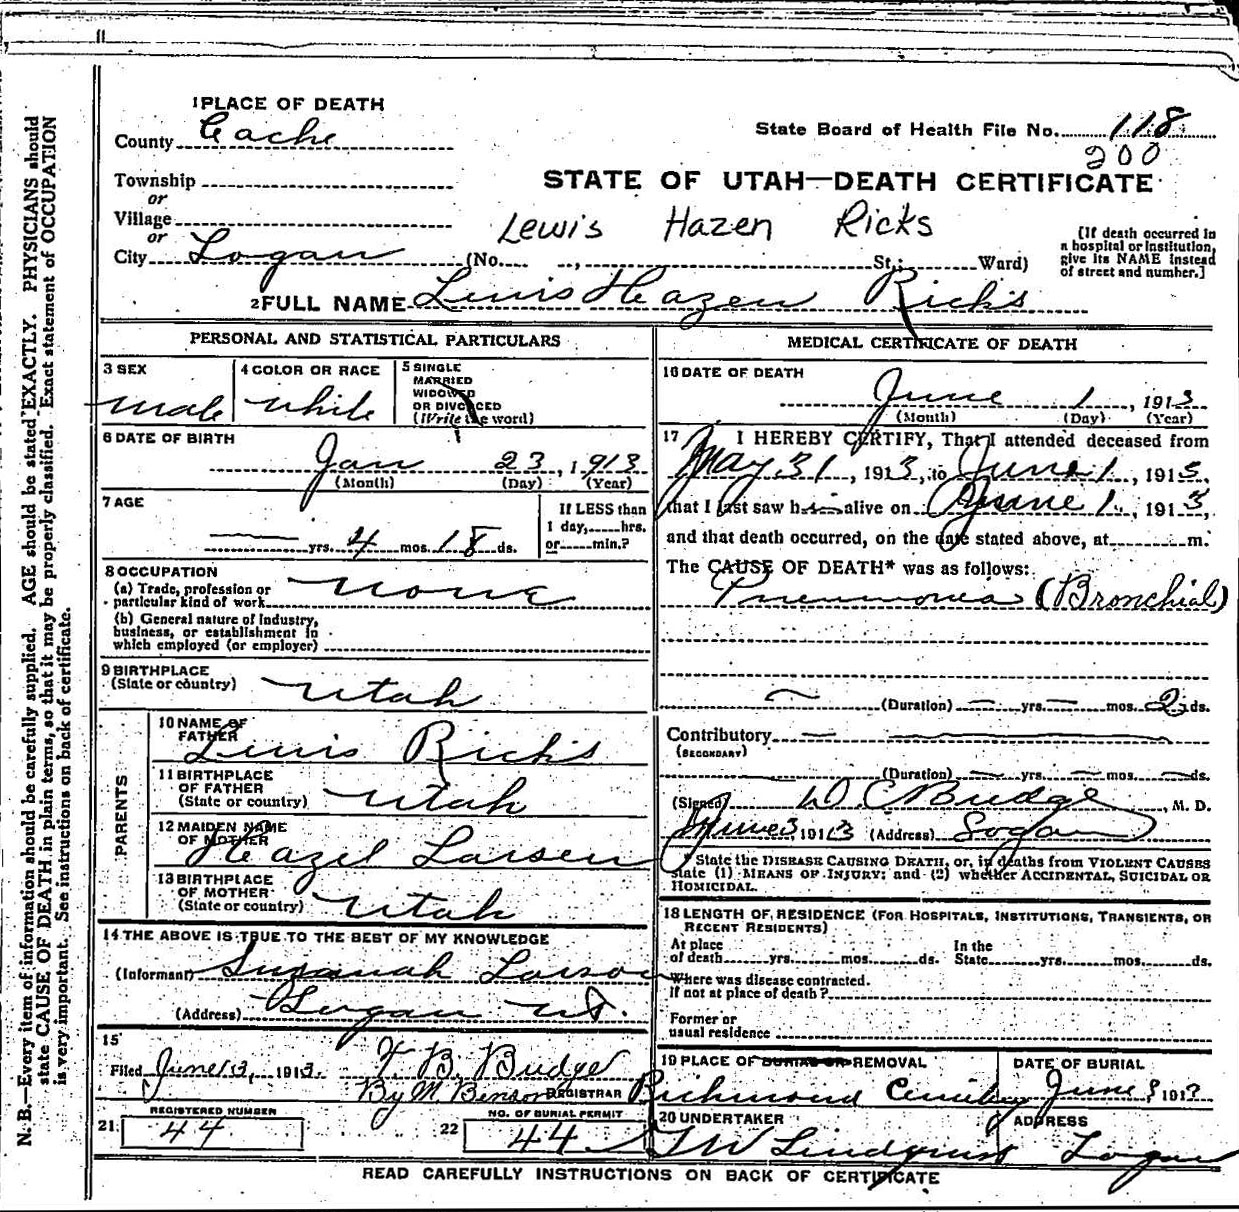 1 PLACE OF DEATH
County Cache
State Board of Health File No. 118
200
Township
or
Village
or
STATE OF UTAH—DEATH CERTIFICATE
Lewis Hazen Ricks
City Logan (No. , St.; Ward)
[If death occurred in
a hospital or institution,
give its NAME instead
of street and number.]
2 FULL NAME Lewis Hazen Ricks
PERSONAL AND STATISTICAL PARTICULARS
3 SEX
male
4 COLOR OR RACE
white
5 SINGLE
MARRIED
WIDOWED
OR DIVORCED
(Write the word)
6 DATE OF BIRTH
Jan 23, 1913
(Month) (Day) (Year)
7 AGE
— yrs. 4 mos. 18 ds.
If LESS than
1 day, hrs.
or min.?
8 OCCUPATION
(a) Trade, profession or
particular kind of work none
(b) General nature of industry,
business, or establishment in
which employed (or employer)
9 BIRTHPLACE
(State or country) Utah
PARENTS
10 NAME OF
FATHER Lewis Ricks
11 BIRTHPLACE
OF FATHER
(State or country) Utah
12 MAIDEN NAME
OF MOTHER Hazel Larsen
13 BIRTHPLACE
OF MOTHER
(State or country) Utah
14 THE ABOVE IS TRUE TO THE BEST OF MY KNOWLEDGE
(Informant) Susanah Larson
(Address) Logan Ut.
15
Filed June 3, 1913. F. B. Budge
By M. Benson REGISTRAR
REGISTERED NUMBER
21. 44
NO. OF BURIAL PERMIT
22 44
MEDICAL CERTIFICATE OF DEATH
16 DATE OF DEATH
June 1, 1913
(Month) (Day) (Year)
17 I HEREBY CERTIFY, That I attended deceased from
May 31, 1913, to June 1, 1913,
that I last saw him alive on June 1, 1913,
and that death occurred, on the date stated above, at m.
The CAUSE OF DEATH* was as follows:
Pneumonia (Bronchial)
— (Duration) — yrs. — mos. 2 ds.
Contributory —
(SECONDARY)
(Duration) — yrs. — mos. — ds.
(Signed) D C Budge, M. D.
June 3 1913 (Address) Logan
* State the DISEASE CAUSING DEATH, or, in deaths from VIOLENT CAUSES
state (1) MEANS OF INJURY; and (2) whether ACCIDENTAL, SUICIDAL OR
HOMICIDAL.
18 LENGTH OF RESIDENCE (FOR HOSPITALS, INSTITUTIONS, TRANSIENTS, OR
RECENT RESIDENTS)
At place
of death yrs. mos. ds.
In the
State yrs. mos. ds.
Where was disease contracted.
If not at place of death?
Former or
usual residence
19 PLACE OF BURIAL OR REMOVAL
Richmond Cemetery
DATE OF BURIAL
June 191
20 UNDERTAKER
Lindquist
ADDRESS
Logan
READ CAREFULLY INSTRUCTIONS ON BACK OF CERTIFICATE
N. B.—Every item of information should be carefully supplied. AGE should be stated EXACTLY. PHYSICIANS should
state CAUSE OF DEATH in plain terms, so that it may be properly classified. Exact statement of OCCUPATION
is very important. See instructions on back of certificate.